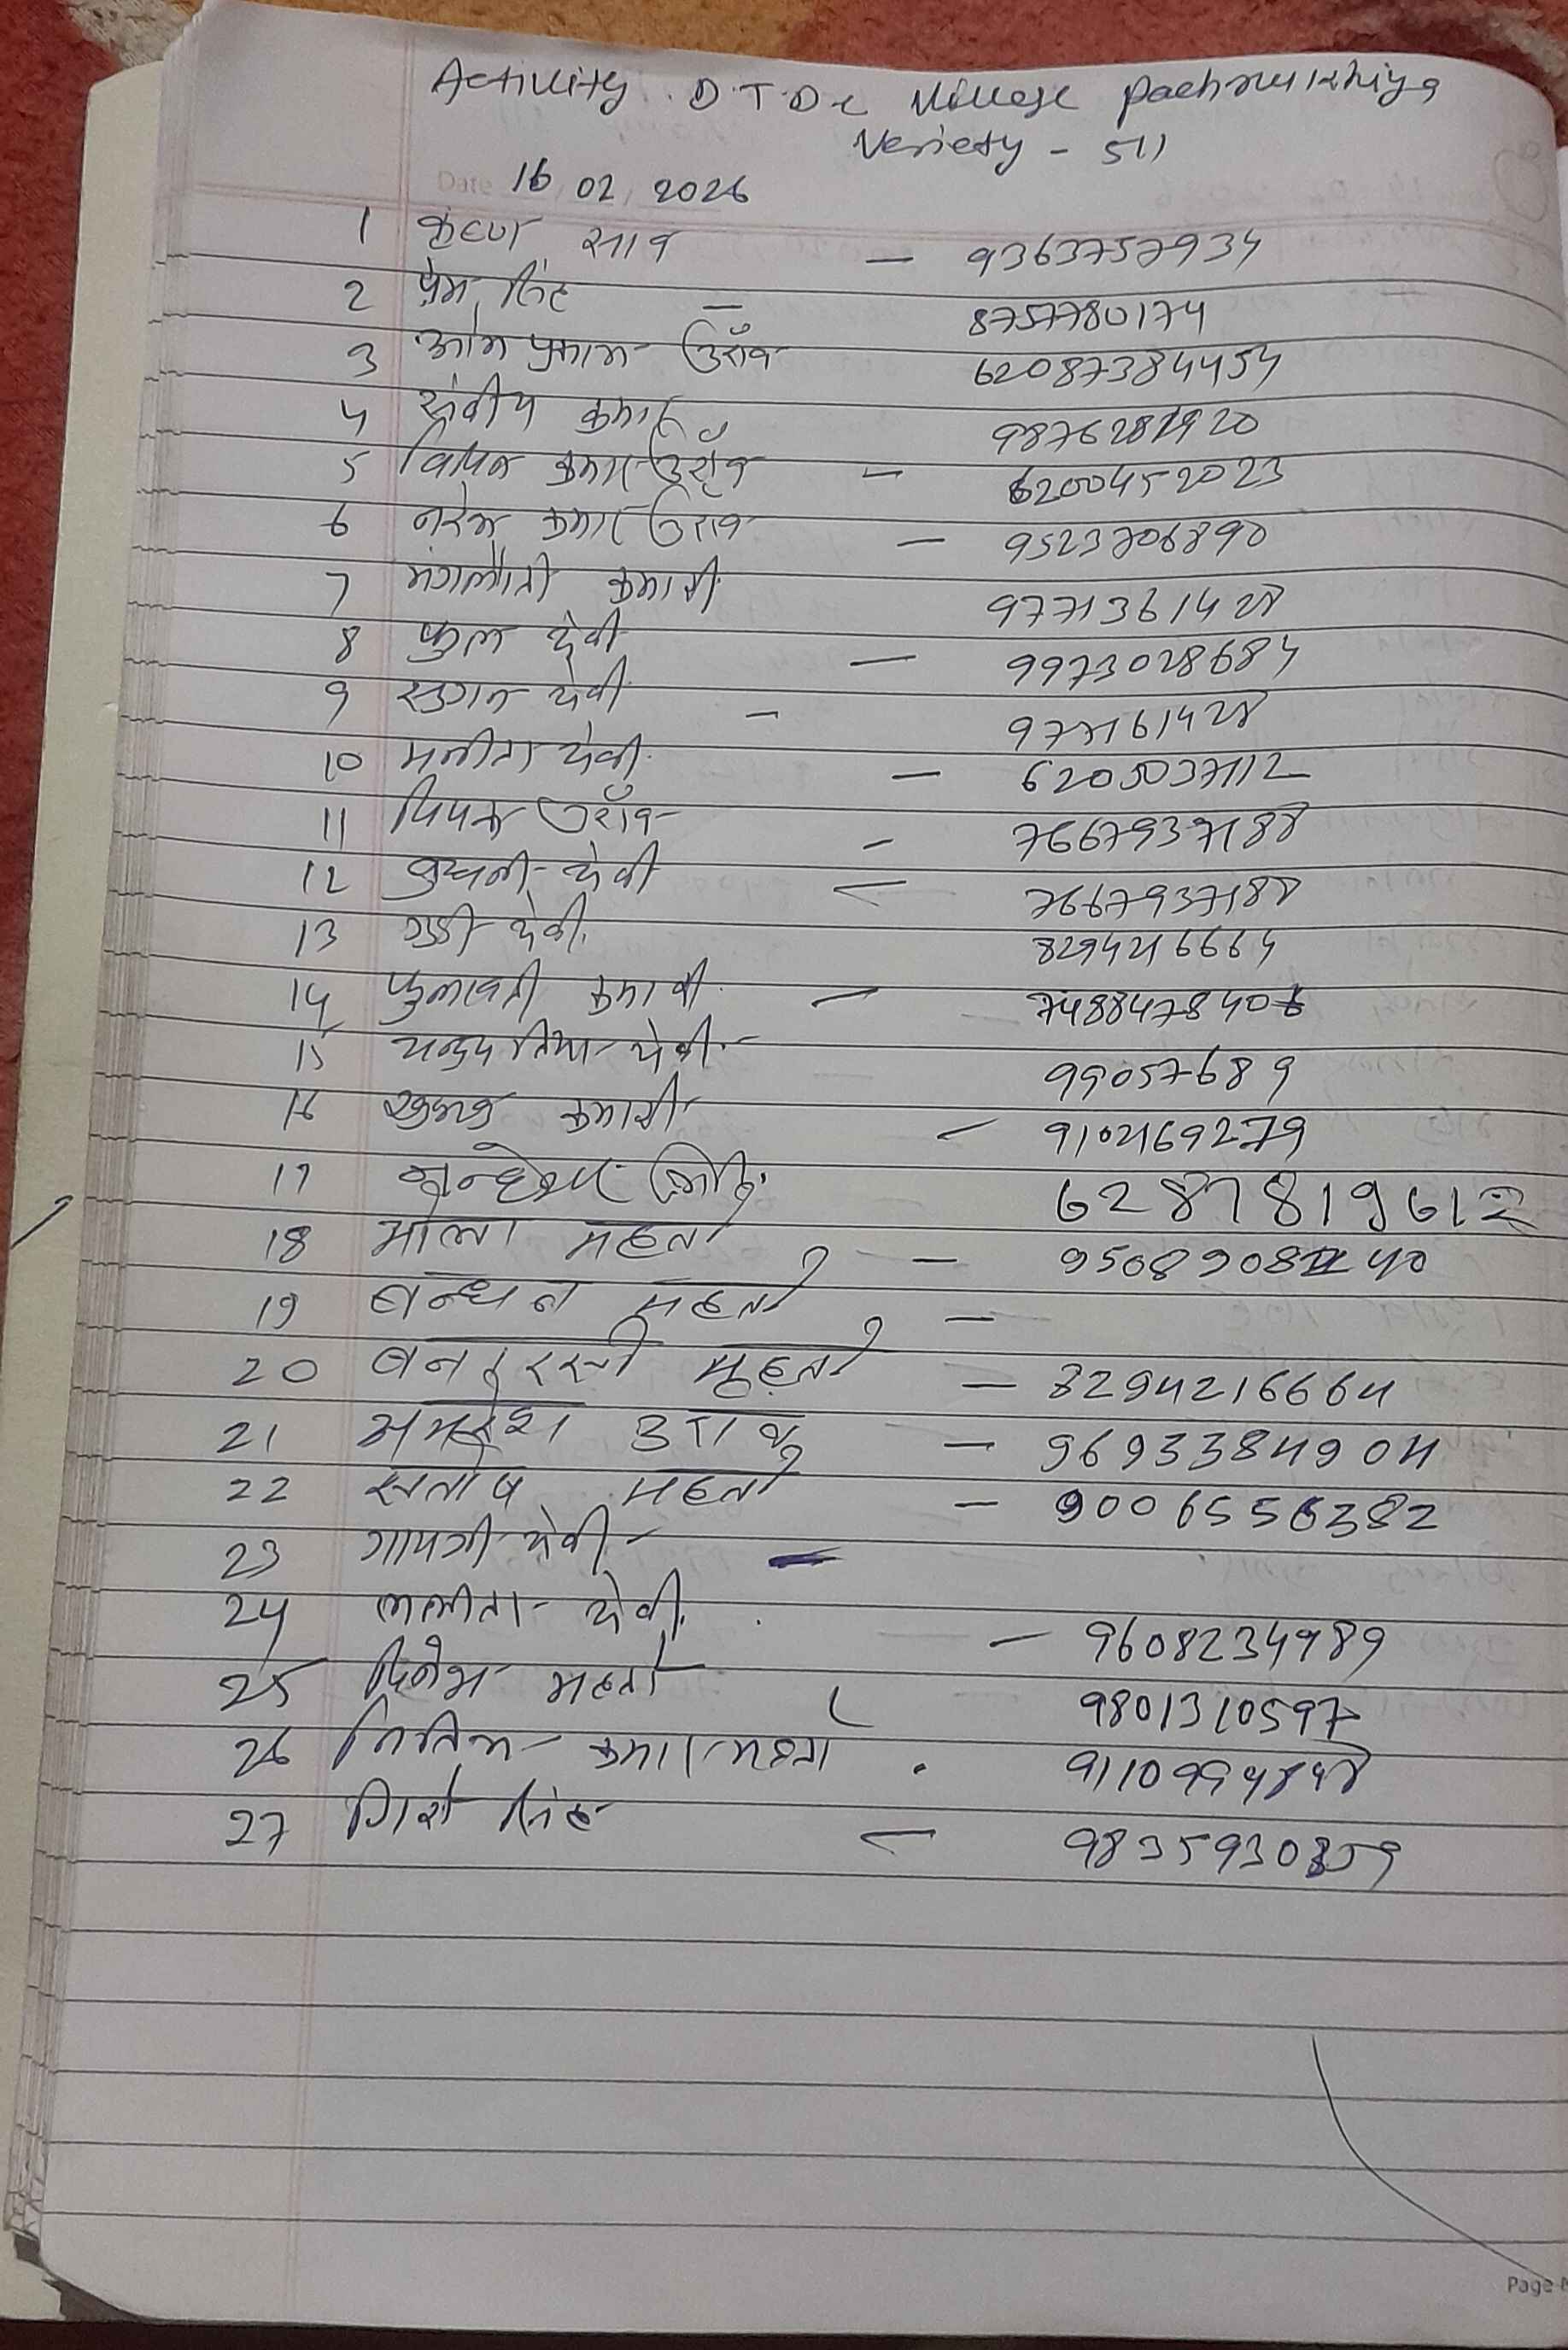 Activity D.T.D.C Village Pachmukhiya
Veriety - 511
Date 16, 02, 2026
1 कृष्ण साव - 9363757934
2 प्रेम सिंह - 8757780174
3 ओम प्रकाश उराँव 62087384454
4 संदीप कुमार 9876281920
5 विपिन कुमार उराँव - 6200452023
6 नरेश कुमार उराव - 9523706890
7 कुमारी 9771361428
8 फुल देवी - 9973028684
9 सुगन देवी -
10 मनीता देवी - 6205037112
11 दिपक उराँव - 7667937188
12 बुधनी देवी - 7667937188
13 गुडी देवी 8294216664
14 फुलावती कुमारी - 7488478406
15 देवी 99057689
16 खुशबु कुमारी - 9102169279
17 6287819612
18 भोला महतो - 9508908240
19 बन्धन महतो -
20 बनारसी महतो - 8294216664
21 उराव - 9693384904
22 सतोष महतो - 9006556382
23 गायत्री देवी -
24 ललीता देवी - 9608234989
25 दिनेश महतो 9801310597
26 नितिश कुमार महतो 9110994848
27 सिंह - 9835930859
Page